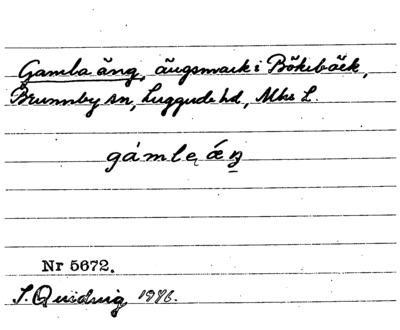 Gamla äng, ängsmark i Bökebäck,
Brunnby sn, Luggude hd, Mhs L.
gámlę ǽŋ
Nr 5672.
J. Qvidwig 1976.